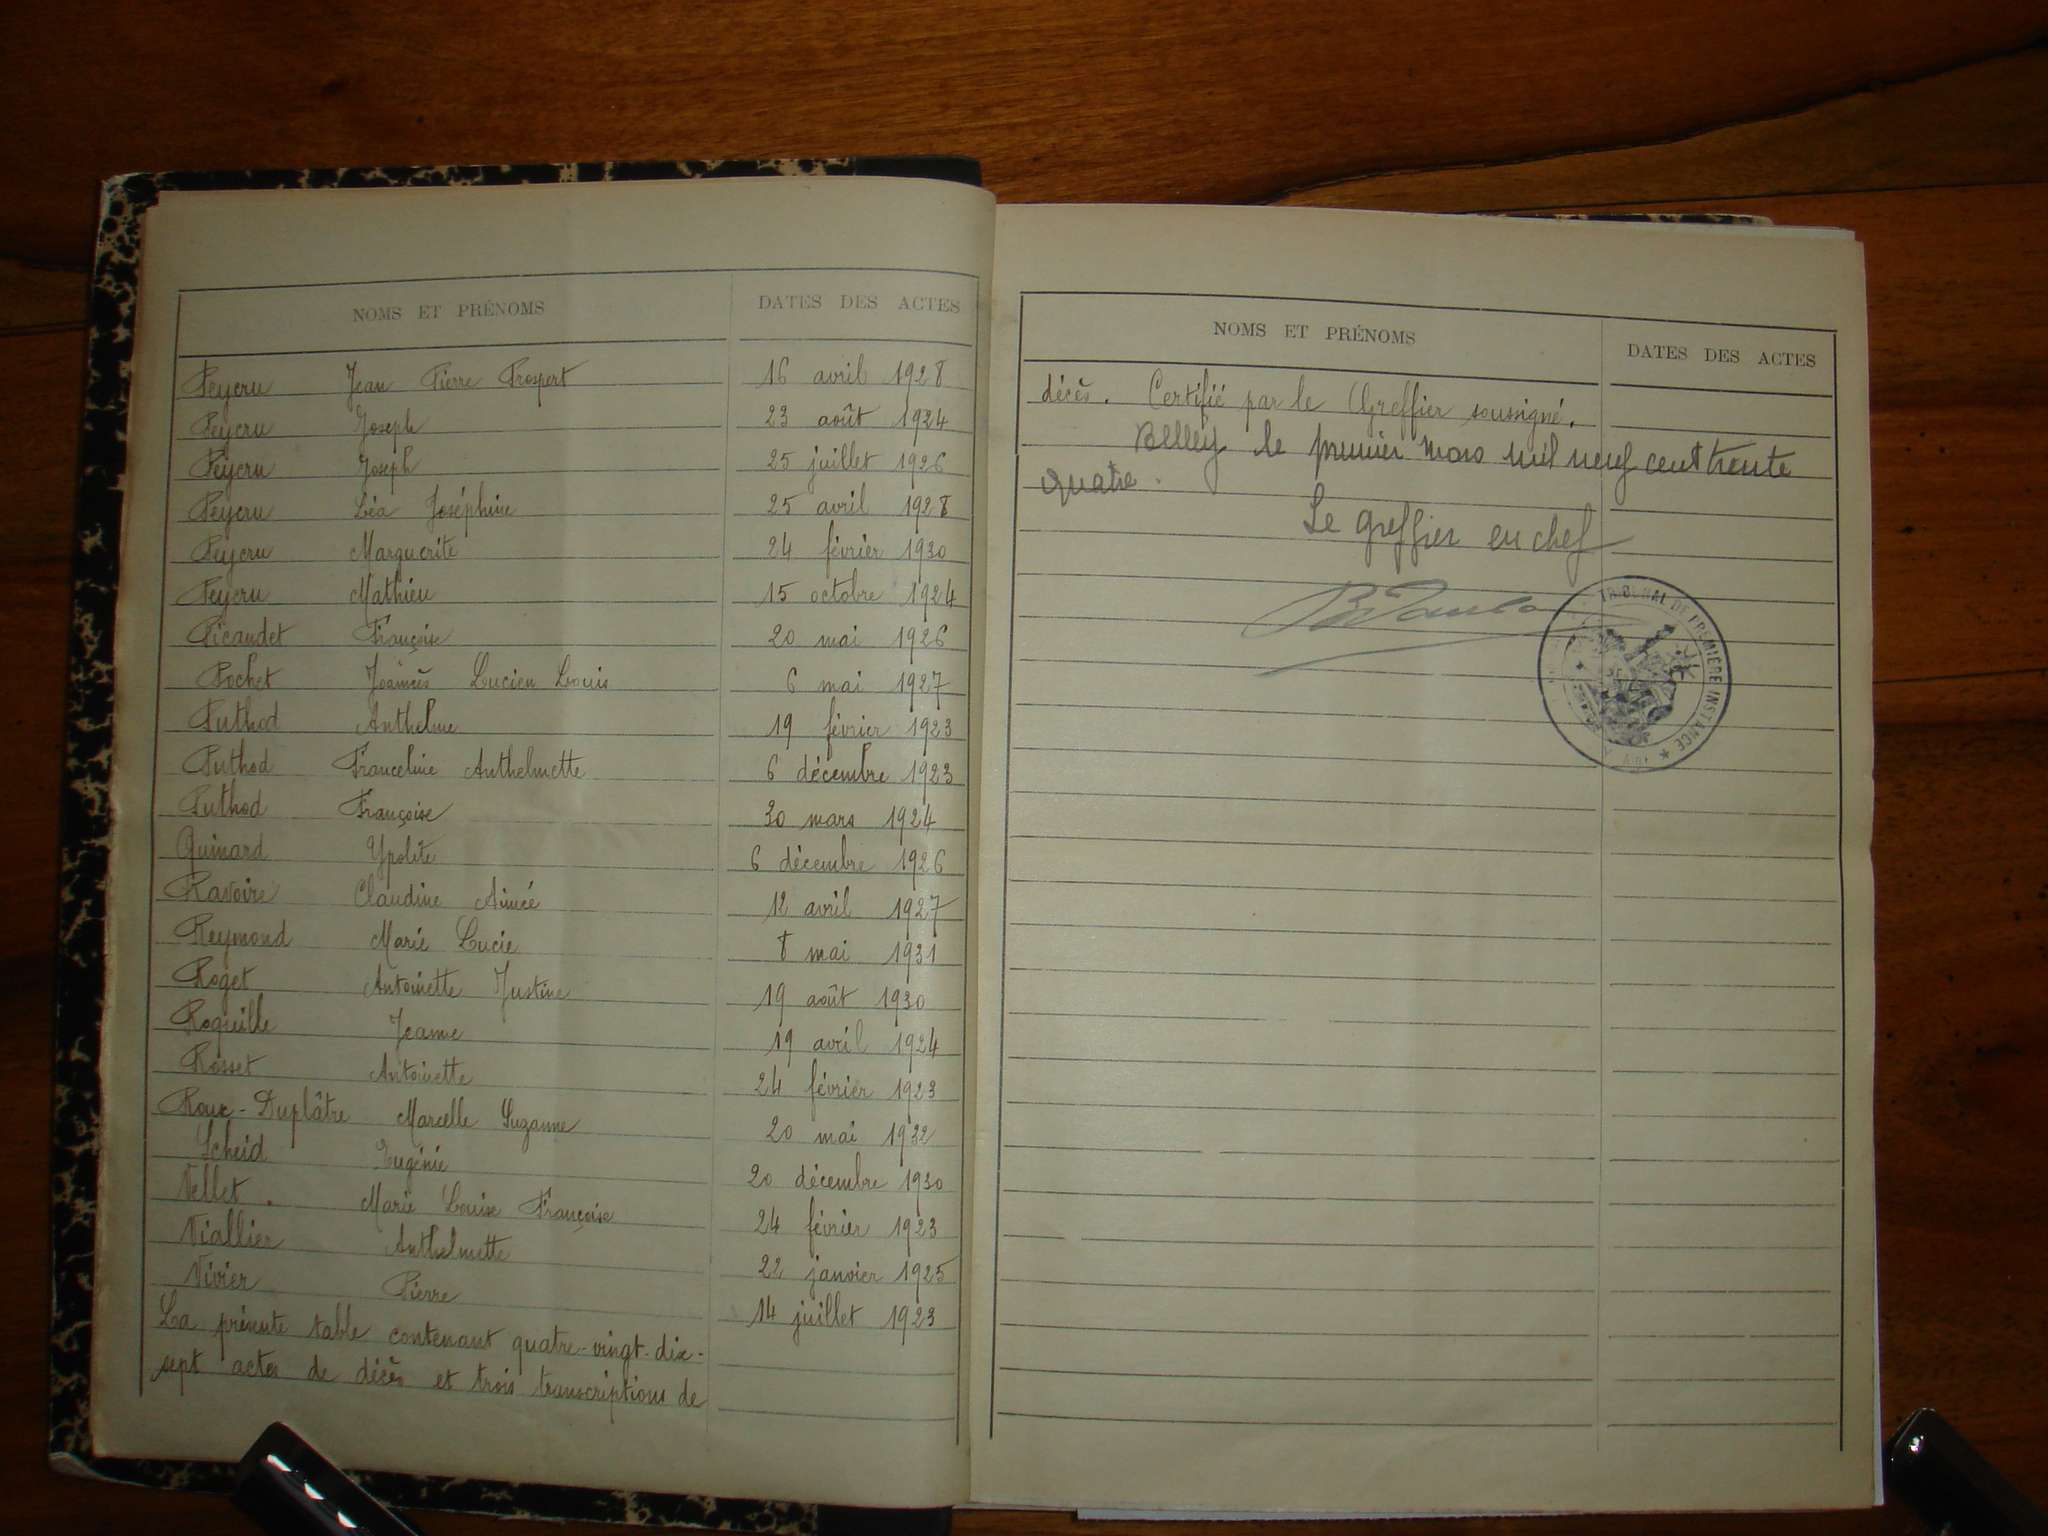 NOMS ET PRÉNOMS DATES DES ACTES
Peyeru Jean Pierre Prospert 16 avril 1928
Peyeru Joseph 23 août 1924
Peyeru Joseph 25 juillet 1926
Peyeru Léa Joséphine 25 avril 1928
Peyeru Marguerite 24 février 1930
Peyeru Mathieu 15 octobre 1924
Picaudet Françoise 20 mai 1926
Pochet Joannès Lucien Louis 6 mai 1927
Puthod Anthelme 19 février 1923
Puthod Franceline Anthelmette 6 décembre 1923
Puthod Françoise 30 mars 1924
Quinard Ypolite 6 décembre 1926
Ravoire Claudine Aimée 12 avril 1927
Reymond Marie Lucie 8 mai 1931
Roget Antoinette Justine 19 août 1930
Roquille Jeanne 19 avril 1924
Rosset Antoinette 24 février 1923
Roux-Duplâtre Marcelle Suzanne 20 mai 1932
Scheid Eugénie 20 décembre 1930
Vellet. Marie Louise Françoise 24 février 1923
Viallier Anthelmette 22 janvier 1925
Vivier Pierre 14 juillet 1923
La présente table contenant quatre-vingt-dix-
sept actes de décès et trois transcriptions de
NOMS ET PRÉNOMS DATES DES ACTES
décès. Certifié par le Greffier soussigné.
Belley le premier mars mil neuf cent trente
quatre.
Le greffier en chef
TRIBUNAL DE PREMIÈRE INSTANCE